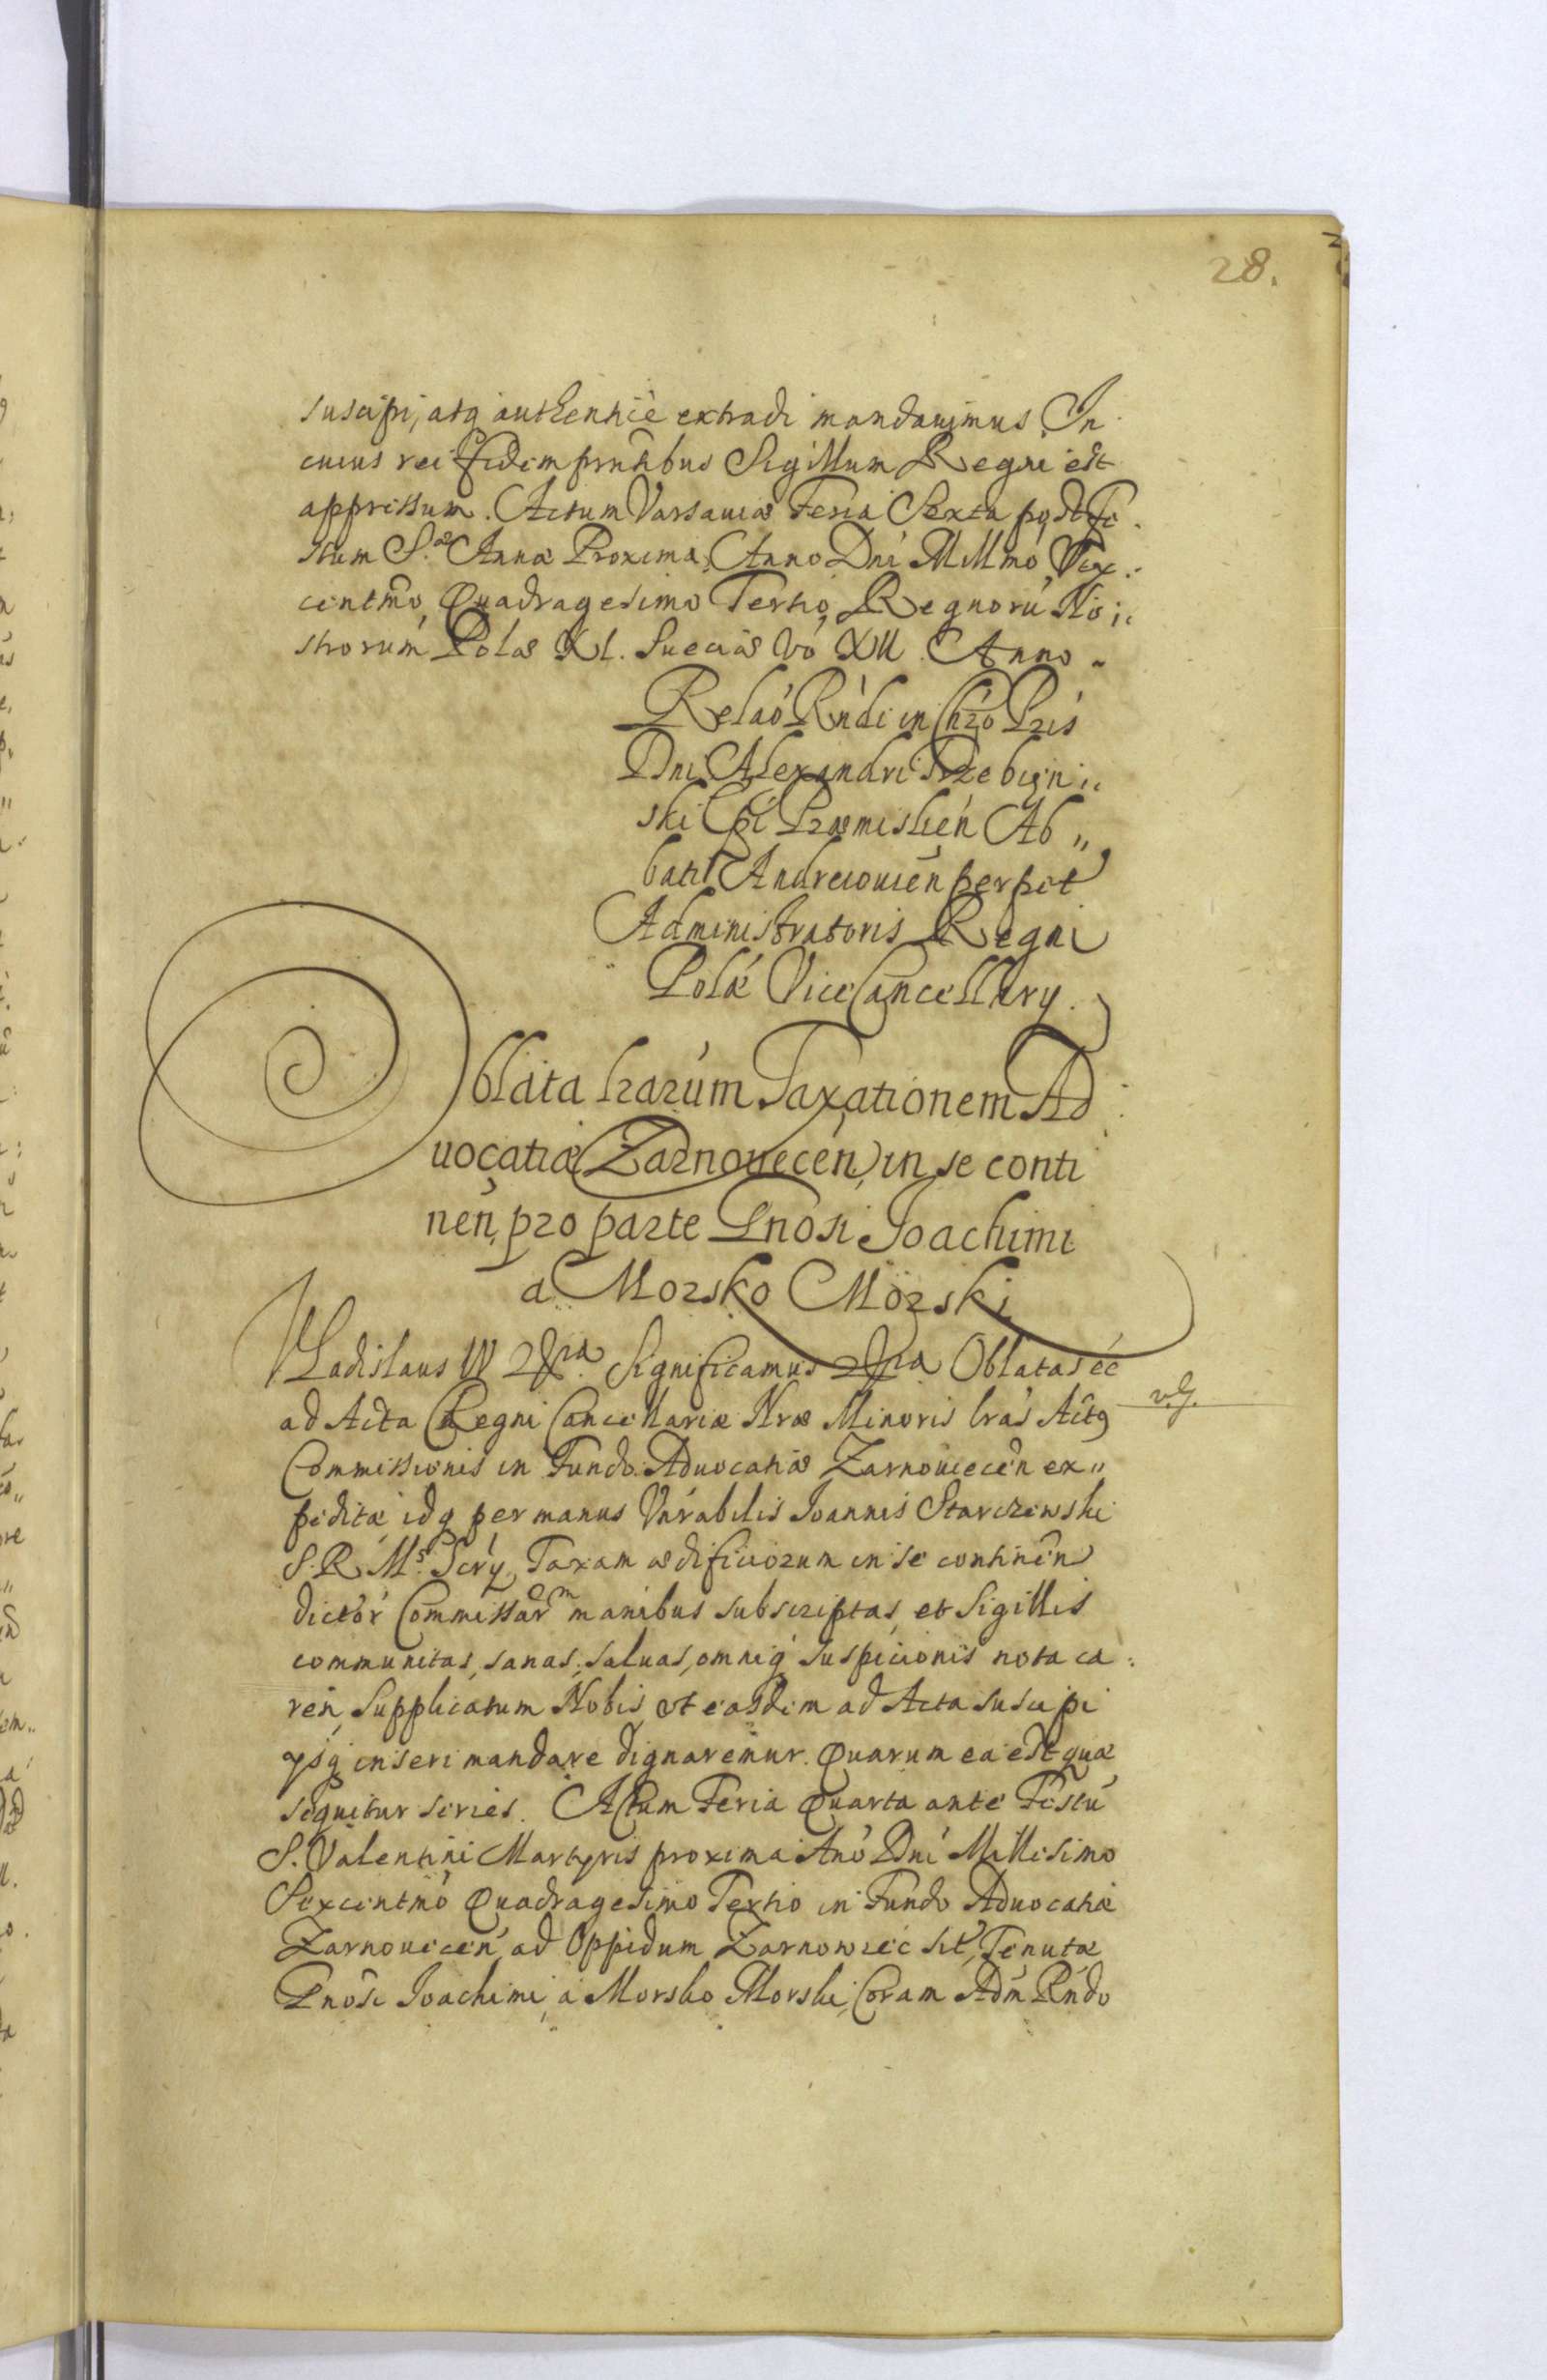 28.
suscipi, atq̃ authenticè extradi mandauimus In
cuius rei fidem prntibus Sigillum Regni est
appressum. Actum Varsauiæ Feria Sexta post Fe:
stum S.æ Annæ Proxima, Anno Dni Millmo Sex:
centmo Quadragesimo Tertio, Regnorú No:
strorum Polæ XI. Sueciæ Vó XII Anno.
Relaó Rndi in Chro Pris
Dni Alexandri Trzebien:
ski Epi Præmislien Ab„
batis Andreiouien perpet
Administratoris Regni
Polæ ViceCancellary.
Oblata lrarúm Taxationem Ad
uocatiæ Zarnouecen, in se conti
nen, pro parte Gnosi Joachimi
a Morsko Morski
Vladislaus IV &ra. Significamus &ra Oblatas éc
ad Acta Regni Cancellariæ Nræ Minoris lrás Actq
Commissionis in Fundo Aduocatiæ Zarnouiecen ex„
peditæ idq per manus Vnrabilis Joannis Starczewski
S. R. Ms. Scry, Taxam ædificiorum in se continen
dictor Commissar manibus subscriptas, et Sigillis
communitas, sanas, saluas, omniq suspicionis nota ca:
ren, Supplicatum Nobis, vt easdem ad Acta suscipi
ysq inseri mandare dignaremur. Quarum ea est quæ
sequitur series. Actum Feria Quarta ante Festú
S. Valentini Martyris proxima Anó Dní Millesimo
Sexcentmó Quadragesimo Tertio in Fundo Aduocatiæ
Zarnouecen ad Oppidum Zarnowiec sit, Tenutæ
Gnosi Joachimi a Morsko Morski, Coram Adm Rndo